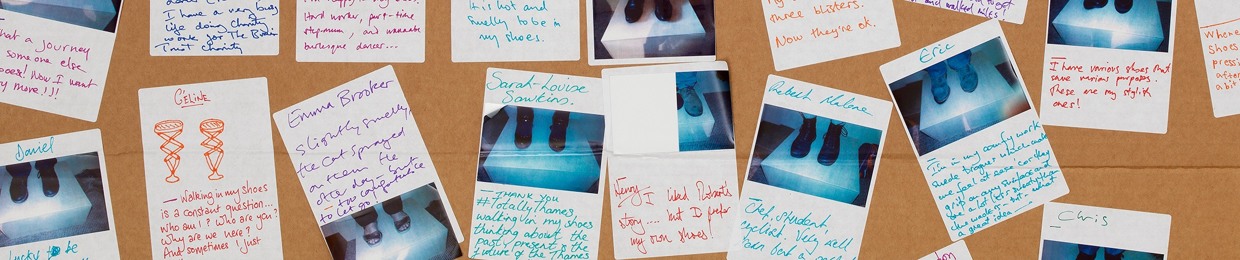 hat a journey
some one else
oes! Now I want
y more!!!
I have a very busy
life doing charity
work for The
Trust Charity
Hard worker, part-time
step-mum, and wannabe
burlesque dancer...
It is hot and
smelly to be in
my shoes.
three blisters.
Now they're ok.
I have various shoes that
serve various purposes.
These are my stylish
ones!
Where
shoes
press
after
a bit
Daniel
Lucky to be
CÉLINE
— Walking in my shoes
is a constant question...
who am I? Who are you?
Why are we here?
And sometimes I just
Emma Brooker
Slightly smelly,
the cat sprayed
on them the
other day - but
too comfortable
to let go!
Sarah-Louise
Sawkins.
— THANK YOU
#TotallyThames
walking in my shoes
thinking about the
past, present & the
future of the Thames
Jenny — I liked Robert's
story.... but I prefer
my own shoes!
Malone
Chef, student,
cyclist. Very well
Eric
I'm in my comfy work
suede brogues which make
me feel at ease 'cos they
grip on any surface and
a great idea —
Chris